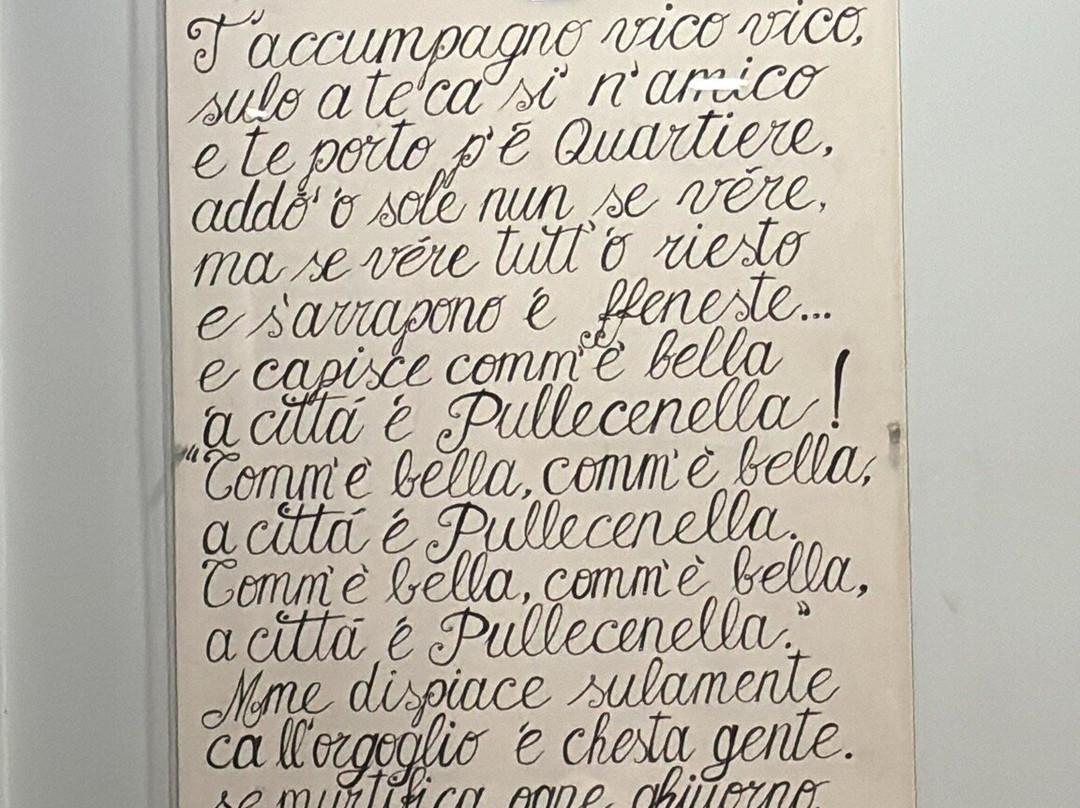 T'accumpagno vico vico,
sulo a te ca si' n'amico
e te porto p'é Quartiere,
addó 'o sole nun se vére,
ma se vére tutt'o riesto
e s'arrapono é ffeneste...
e capisce comm'é bella
'a cittá é Pullecenella!
"Comm'é bella, comm'è bella,
a cittá é Pullecenella.
Comm'è bella, comm'è bella,
a cittá é Pullecenella."
Mme dispiace sulamente
ca ll'orgoglio 'e chesta gente.
se murtifica ogne ghiuorno